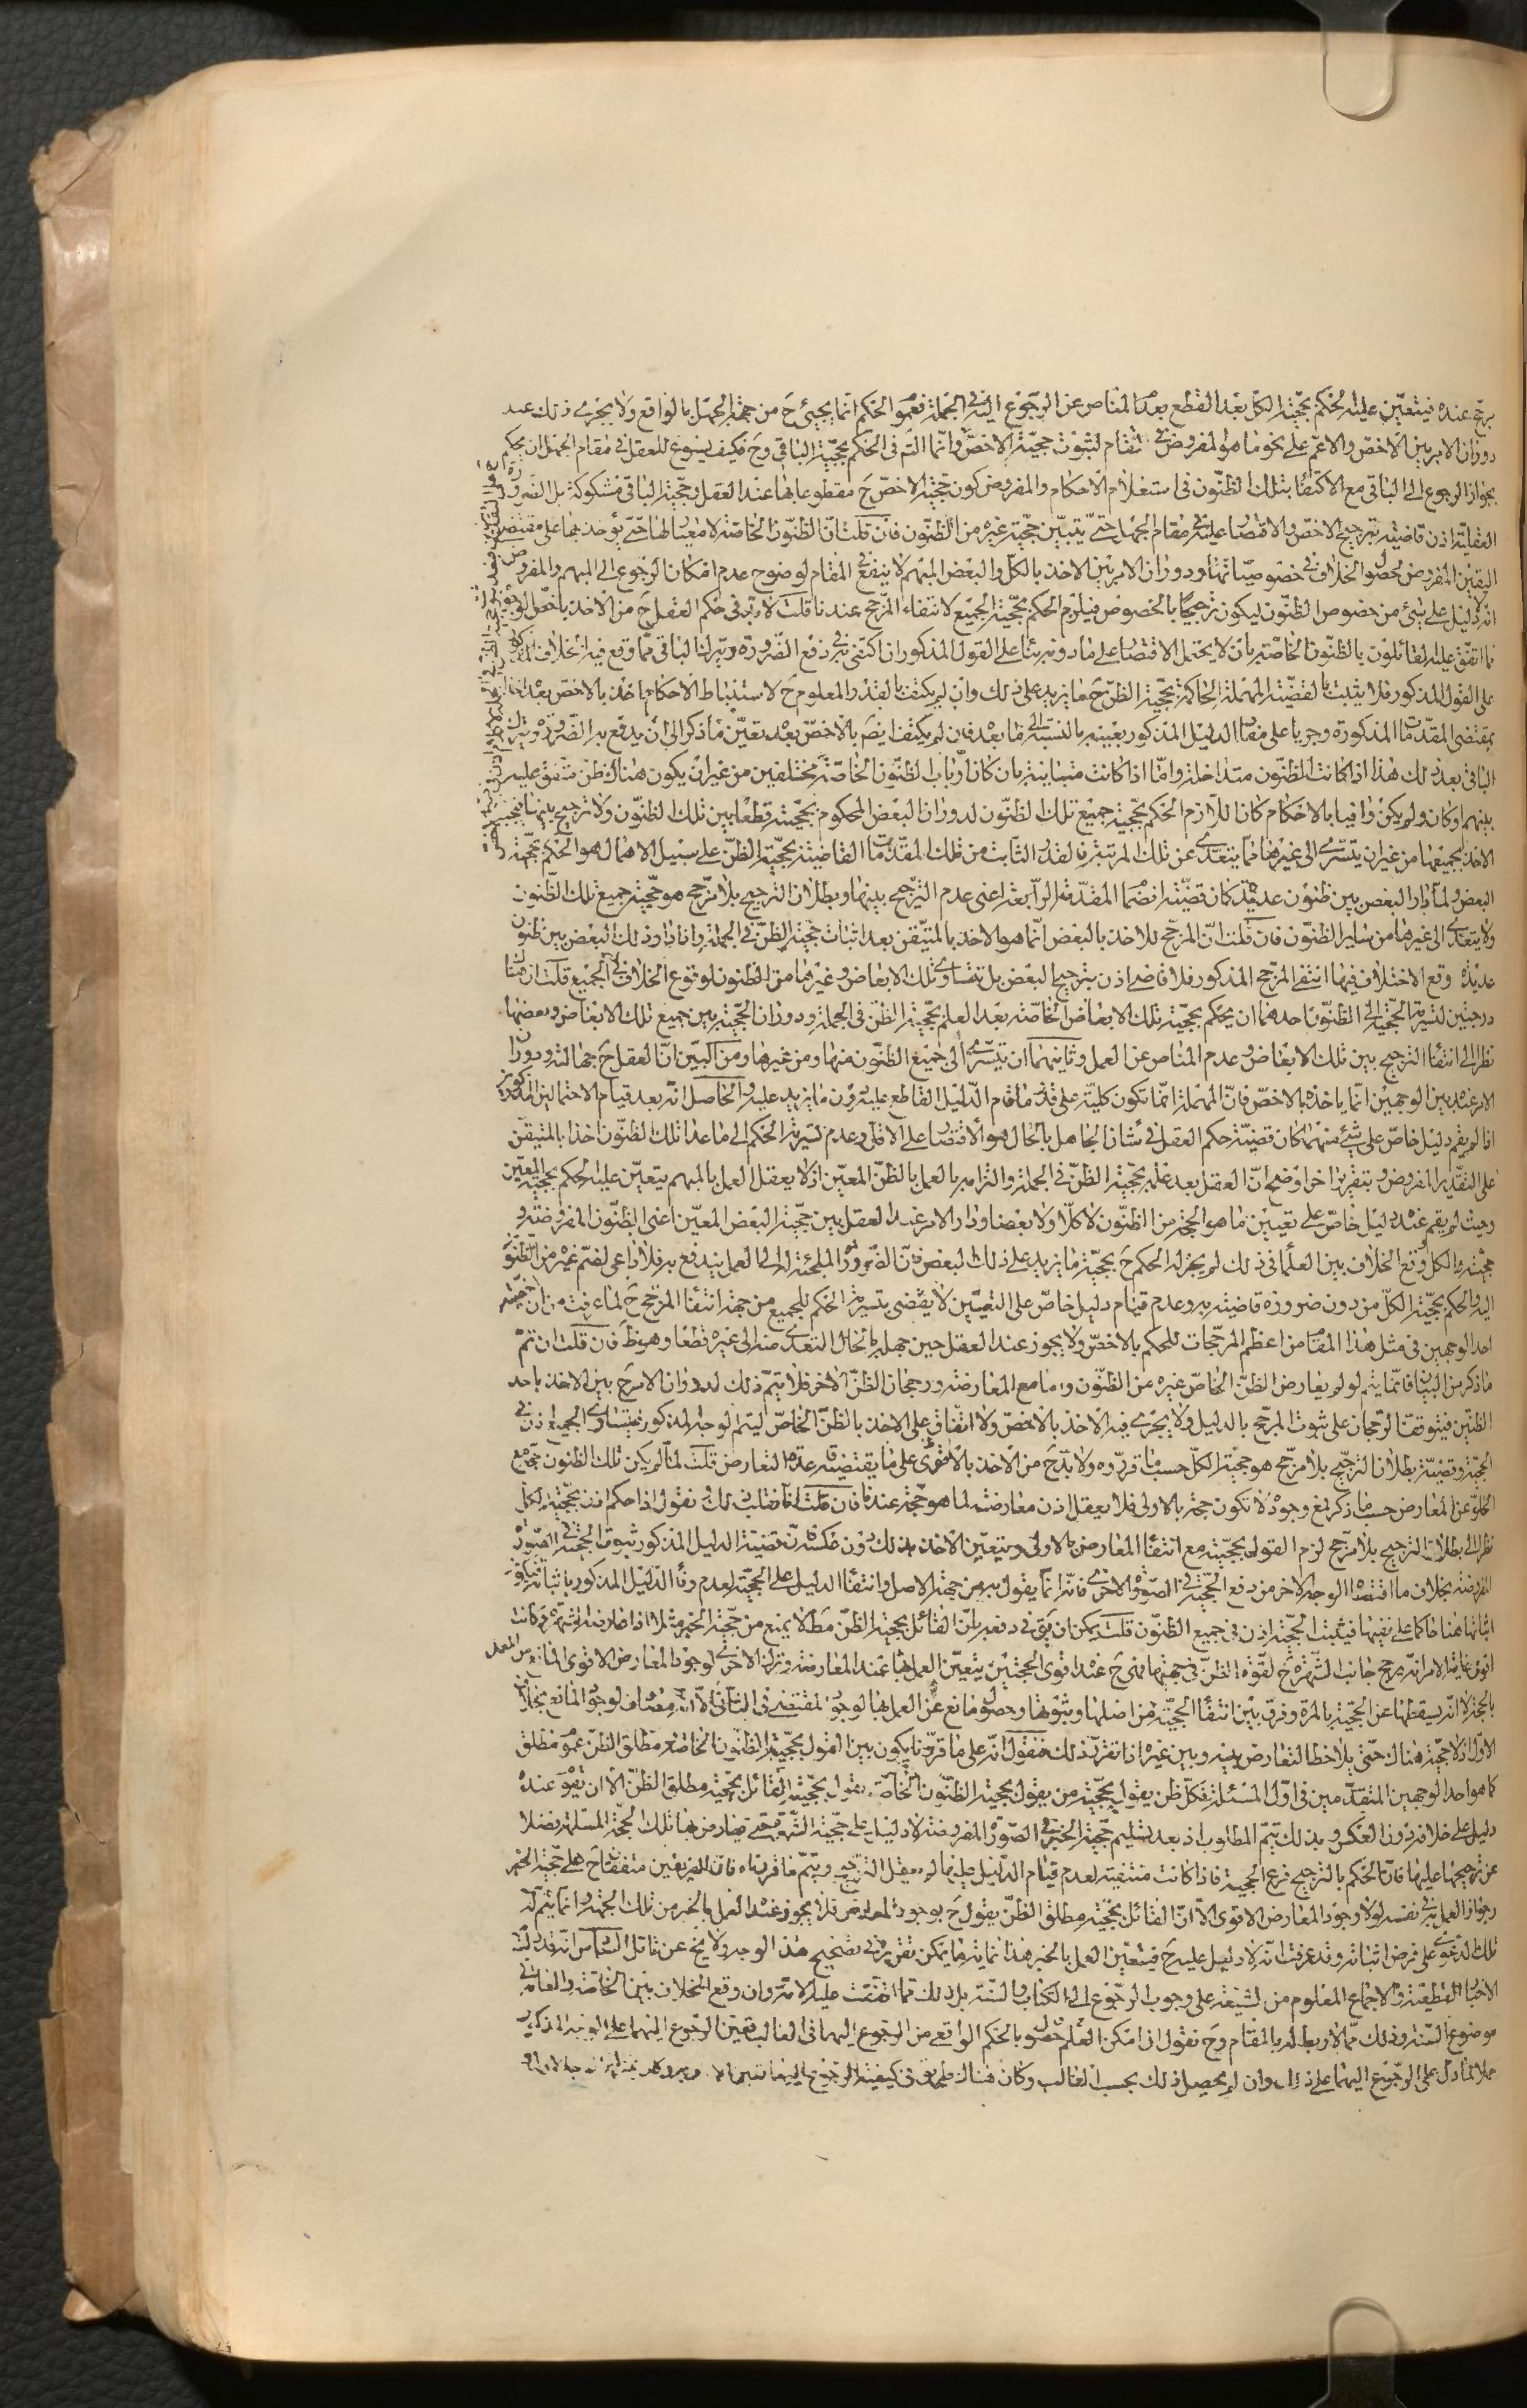 يرجح عنده فيتعين عليه الحكم بحجية الكل بعد القطع بعدم المناص عن الرجوع اليه في الجملة فعموم الحكم انما يجيئ ح من جهة الجهل بالواقع ولا يجري ذلك عند
دوران الامر بين الاخص والاعم على نحو ما هو المفروض في المقام لثبوت حجية الاخص وانما الشك في الحكم بحجية الباقي وح فكيف يسوغ للعقل في مقام الجهل ان يحكم
بجواز الرجوع الى الباقي مع الاكتفاء بتلك الظنون في استعلام الاحكام والمفروض كون حجية الاخص ح مقطوعا بها عند العقل وحجية الباقي مشكوكة بل الضرورة
العقلية اذن قاضية بترجيح الاخص والاقتصار عليه في مقام الجهل حتى يتبين حجية غيره من الظنون فان قلت ان الظنون الخاصة لا معيار لها حتى يؤخذ بها على مقتضى
اليقين المفروض لحصول الخلاف في خصوصياتها ودوران الامر بين الاخذ بالكل والبعض المبهم لا ينفع في المقام لوضوح عدم امكان الرجوع الى المبهم والمفروض
انه لا دليل على شيئ من خصوص الظنون ليكون ترجيحا بالخصوص فيلزم الحكم بحجية الجميع لانتفاء المرجح عندنا قلت لا بد في حكم العقل ح من الاخذ باخص الوجوه
مما اتفق عليه القائلون بالظنون الخاصة بان لا يحتمل الاقتصار على ما دونه بناء على القول المذكور ان اكتفي به في دفع الضرورة وترك الباقي مما وقع فيه الخلاف
على القول المذكور فلا يثبت بالقضية المهملة الحاكمة بحجية الظن ح ما يزيد على ذلك وان لم يكتف بالقدر المعلوم ح لاستنباط الاحكام اخذ بالاخص بعده اخذا
بمقتضى المقدمات المذكورة وجريا على مفاد الدليل المذكور بعينه بالنسبة الى ما بعده فان لم يكتف ايضم بالاخص بعده تعين ما ذكر الى ان يدفع به الضرورة ويترك
الباقي بعد ذلك هذا اذا كانت الظنون متداخلة واما اذا كانت متباينة بان كان ارباب الظنون الخاصة مختلفين من غير ان يكون هناك ظن متفق عليه
بينهم او كان ولم يكن وافيا بالاحكام كان اللازم الحكم بحجية جميع تلك الظنون لدوران البعض المحكوم بحجيته قطعا بين تلك الظنون ولا ترجيح بينها فيجب
الاخذ بجميعها من غير ان يتسرى الى غيرها مما يتعدى عن تلك المرتبة فالقدر الثابت من تلك المقدمات القاضية بحجية الظن على سبيل الاهمال هو الحكم بحجية
البعض ولما دار البعض بين ظنون عديدة كان قضية انضمام المقدمة الرابعة اعني عدم الترجيح بينها وبطلان الترجيح بلا مرجح هو حجية جميع تلك الظنون
ولا يتعدى الى غيرها من ساير الظنون فان قلت ان المرجح للاخذ بالبعض انما هو الاخذ بالمتيقن بعد اثبات حجية الظن في الجملة واذا دار ذلك البعض بين ظنون
عديدة وقع الاختلاف فيها انتفى المرجح المذكور فلا قاضي اذن بترجيح البعض بل يتساوى تلك الابعاض وغيرها من الظنون لوقوع الخلاف في الجميع قلت ان هنا
درجتين لتسرية الحجية الى الظنون احدهما ان يحكم بحجية تلك الابعاض الخاصة بعد العلم بحجية الظن في الجملة ودوران الحجية بين جميع تلك الابعاض وبعضها
نظرا الى انتفاء الترجيح بين تلك الابعاض وعدم المناص عن العمل وثانيهما ان يتسرى الى جميع الظنون منها ومن غيرها ومن البين ان العقل ح جهالته ودوران
الامر عنده بين الوجهين انما ياخذ بالاخص فان المهملة انما تكون كلية على قدر ما قام الدليل القاطع عليه دون ما يزيد عليه والحاصل انه بعد قيام الاحتمالين المذكورين
اذا لم يقم دليل خاص على شيئ منهما كان قضية حكم العقل في شان الجاهل بالحال هو الاقتصار على الاقل وعدم تسرية الحكم الى ما عدا تلك الظنون اخذا بالمتيقن
على التقدير المفروض وبتقرير اخر اوضح ان العقل بعد علمه بحجية الظن في الجملة والتزامه بالعمل بالظن المعين اذ لا يعقل العمل بالمبهم يتعين عليه الحكم بحجية المعين
وحيث لم يقم عنده دليل خاص على تعيين ما هو الحجة من الظنون لا كلا ولا بعضا ودار الامر عند العقل بين حجية البعض المعين اعني الظنون المفروضة و
حجية الكل ووقع الخلاف بين العلماء في ذلك لم يجز له الحكم ح بحجية ما يزيد على ذلك البعض فان الضرورة الملجئة له الى العمل يندفع به فلا داعي لضم غيره من الظنون
اليه والحكم بحجية الكل من دون ضرورة قاضية به وعدم قيام دليل خاص على التعيين لا يقضي بتسرية الحكم للجميع من جهة انتفاء المرجح ح لما عرفت من ان اخصية
احد الوجهين في مثل هذا المقام من اعظم المرجحات للحكم بالاخص ولا يجوز عند العقل حين جهله بالحال التعدي منه الى غيره قطعا وهو ظ فان قلت ان تم
ما ذكر من البيان فانما يتم لو لم يعارض الظن الخاص غيره من الظنون واما مع المعارضة ورجحان الظن الاخر فلا يتم ذلك لدوران الامر ح بين الاخذ باحد
الظنين فيتوقف الرجحان على ثبوت المرجح بالدليل ولا يجري فيه الاخذ بالاخص ولا اتفاق على الاخذ بالظن الخاص ليتم الوجه المذكور فيتساوى الجميع اذن في
الحجية وقضية بطلان الترجيح بلا مرجح هو حجية الكل حسب ما قرروه ولا بد ح من الاخذ بالاقوى على ما يقتضيه قاعدة التعارض قلت لما لم يكن تلك الظنون حجة مع
الخلو عن المعارض حسب ما ذكر فمع وجوده لا تكون حجة بالاولى فلا يعقل اذن معارضته لما هو حجة عندنا فان قلت انا نقلب ذلك ونقول اذا حكم اذن بحجية الكل
نظرا الى بطلان الترجيح بلا مرجح لزم القول بحجيته مع انتفاء المعارض بالاولى ويتعين الاخذ بذلك دون عكسه لان قضية الدليل المذكور ثبوت الحجية في الصورة
المفروضة بخلاف ما اقتضاه الوجه الاخر من دفع الحجية في الصورة الاخرى فانه انما يقول به من جهة الاصل وانتفاء الدليل على الحجية لعدم وفاء الدليل المذكور باثباته
اثباتها هنا حاكما على نفيها فيثبت الحجية اذن في جميع الظنون قلت يمكن ان يق في دفعه بان القائل بحجية الظن مطلقا لا يمنع من حجية الخبر مثلا اذا عارضه الشهرة وكانت
اقوى غاية الامر انه يرجح جانب الشهرة ح لقوة الظن في جهتها فيندرج عنده اقوى الحجتين يتعين العمل بها عند المعارضة وترك الاخرى لوجود المعارض الاقوى المانع من العمل
بالحجة لا انه يسقطها عن الحجية بالمرة وفرق بين انتفاء الحجية من اصلها وثبوتها وحصول مانع عن العمل بها لوجود المقتضي في الثاني الا انه مصادف لوجود المانع بخلاف
الاول اذ لا حجية هناك حتى يلاحظ التعارض بينه وبين غيره اذا تقرر ذلك فنقول انه على ما قررنا يكون بين القول بحجية الظنون الخاصة ومطلق الظن عموم مطلق
كما هو احد الوجهين المتقدمين في اول المسئلة فكل ظن يقول بحجيته من يقول بحجية الظنون الخاصة يقول بحجيته القائل بحجية مطلق الظن الا ان يقوم عنده
دليل على خلافه دون العكس وبذلك يتم المطلوب اذ بعد تسليم حجية الخبر في الصورة المفروضة لا دليل على حجية الشهرة حتى يعارض بها تلك الحجة المسلمة فضلا
عن ترجيحها عليها فان الحكم بالترجيح فرع الحجية فاذا كانت منتفية لعدم قيام الدليل عليها لم يعقل الترجيح ويتم ما قررناه فان الفريقين متفقان ح على حجية الخبر
وجواز العمل به في نفسه لولا وجود المعارض الاقوى الا ان القائل بحجية مطلق الظن يقول ح بوجود المعارض فلا يجوز عنده العمل بالخبر من تلك الجهة وانما يتم له
تلك الدعوى على فرض اثباته وقد عرفت انه لا دليل عليه ح فيتعين العمل بالخبر هذا غاية ما يمكن تقريره في تصحيح هذا الوجه ولا يخ عن تامل السادس انه قد دلت
الاخبار القطعية والاجماع المعلوم من الشيعة على وجوب الرجوع الى الكتاب والسنة بل ذلك مما اتفقت عليه الامة وان وقع الخلاف بين الخاصة والعامة في
موضوع السنة وذلك مما لا ربط له بالمقام وح نقول ان امكن حصول العلم بالحكم الواقعي من الرجوع اليهما في الغالب تعين الرجوع اليهما على الوجه المذكور
حملا لما دل على الرجوع اليهما على ذلك وان لم يحصل ذلك بحسب الغالب وكان هناك طريق في كيفية الرجوع اليهما تعين